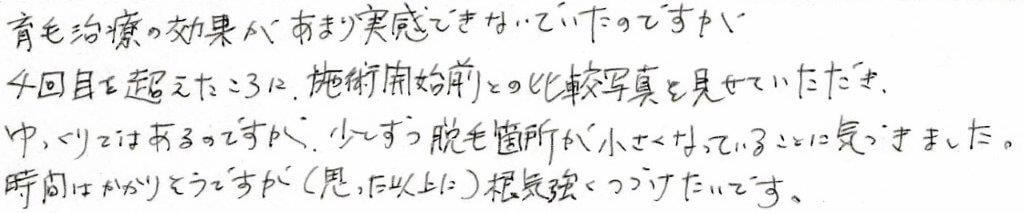 育毛治療の効果があまり実感できないでいたのですが
4回目を超えたころに、施術開始前との比較写真を見せていただき、
ゆっくりではあるのですが、少しずつ脱毛箇所が小さくなっていることに気づきました。
時間はかかりそうですが（思った以上に）根気強くつづけたいです。